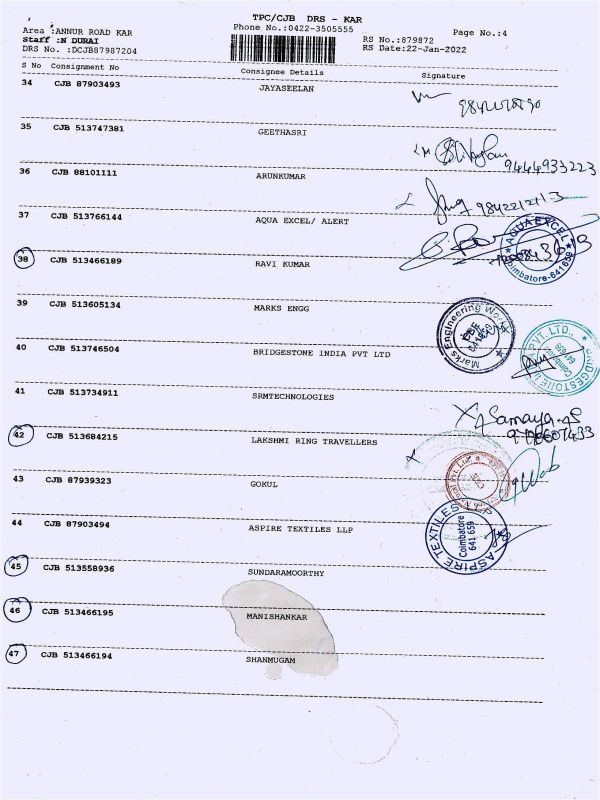 TPC/CJB DRS - KAR
Area :ANNUR ROAD KAR
Phone No.:0422-3505555
Page No.:4
Staff :N DURAI
RS No.:879872
DRS No. :DCJB87987204
RS Date:22-Jan-2022
S No Consignment No Consignee Details Signature
34 CJB 87903493 JAYASEELAN
35 CJB 513747381 GEETHASRI
9444933223
36 CJB 88101111 ARUNKUMAR
37 CJB 513766144 AQUA EXCEL/ ALERT
AQUA EXCEL
Coimbatore-641659
38 CJB 513466189 RAVI KUMAR
39 CJB 513605134 MARKS ENGG
Marks Engineering Works
40 CJB 513746504 BRIDGESTONE INDIA PVT LTD
BRIDGESTONE PVT LTD.
Coimbatore
641 659
41 CJB 513734911 SRMTECHNOLOGIES
Samaya
42 CJB 513684215 LAKSHMI RING TRAVELLERS
43 CJB 87939323 GOKUL
44 CJB 87903494 ASPIRE TEXTILES LLP
ASPIRE TEXTILES LLP
Coimbatore
641 659
45 CJB 513558936 SUNDARAMOORTHY
46 CJB 513466195 MANISHANKAR
47 CJB 513466194 SHANMUGAM